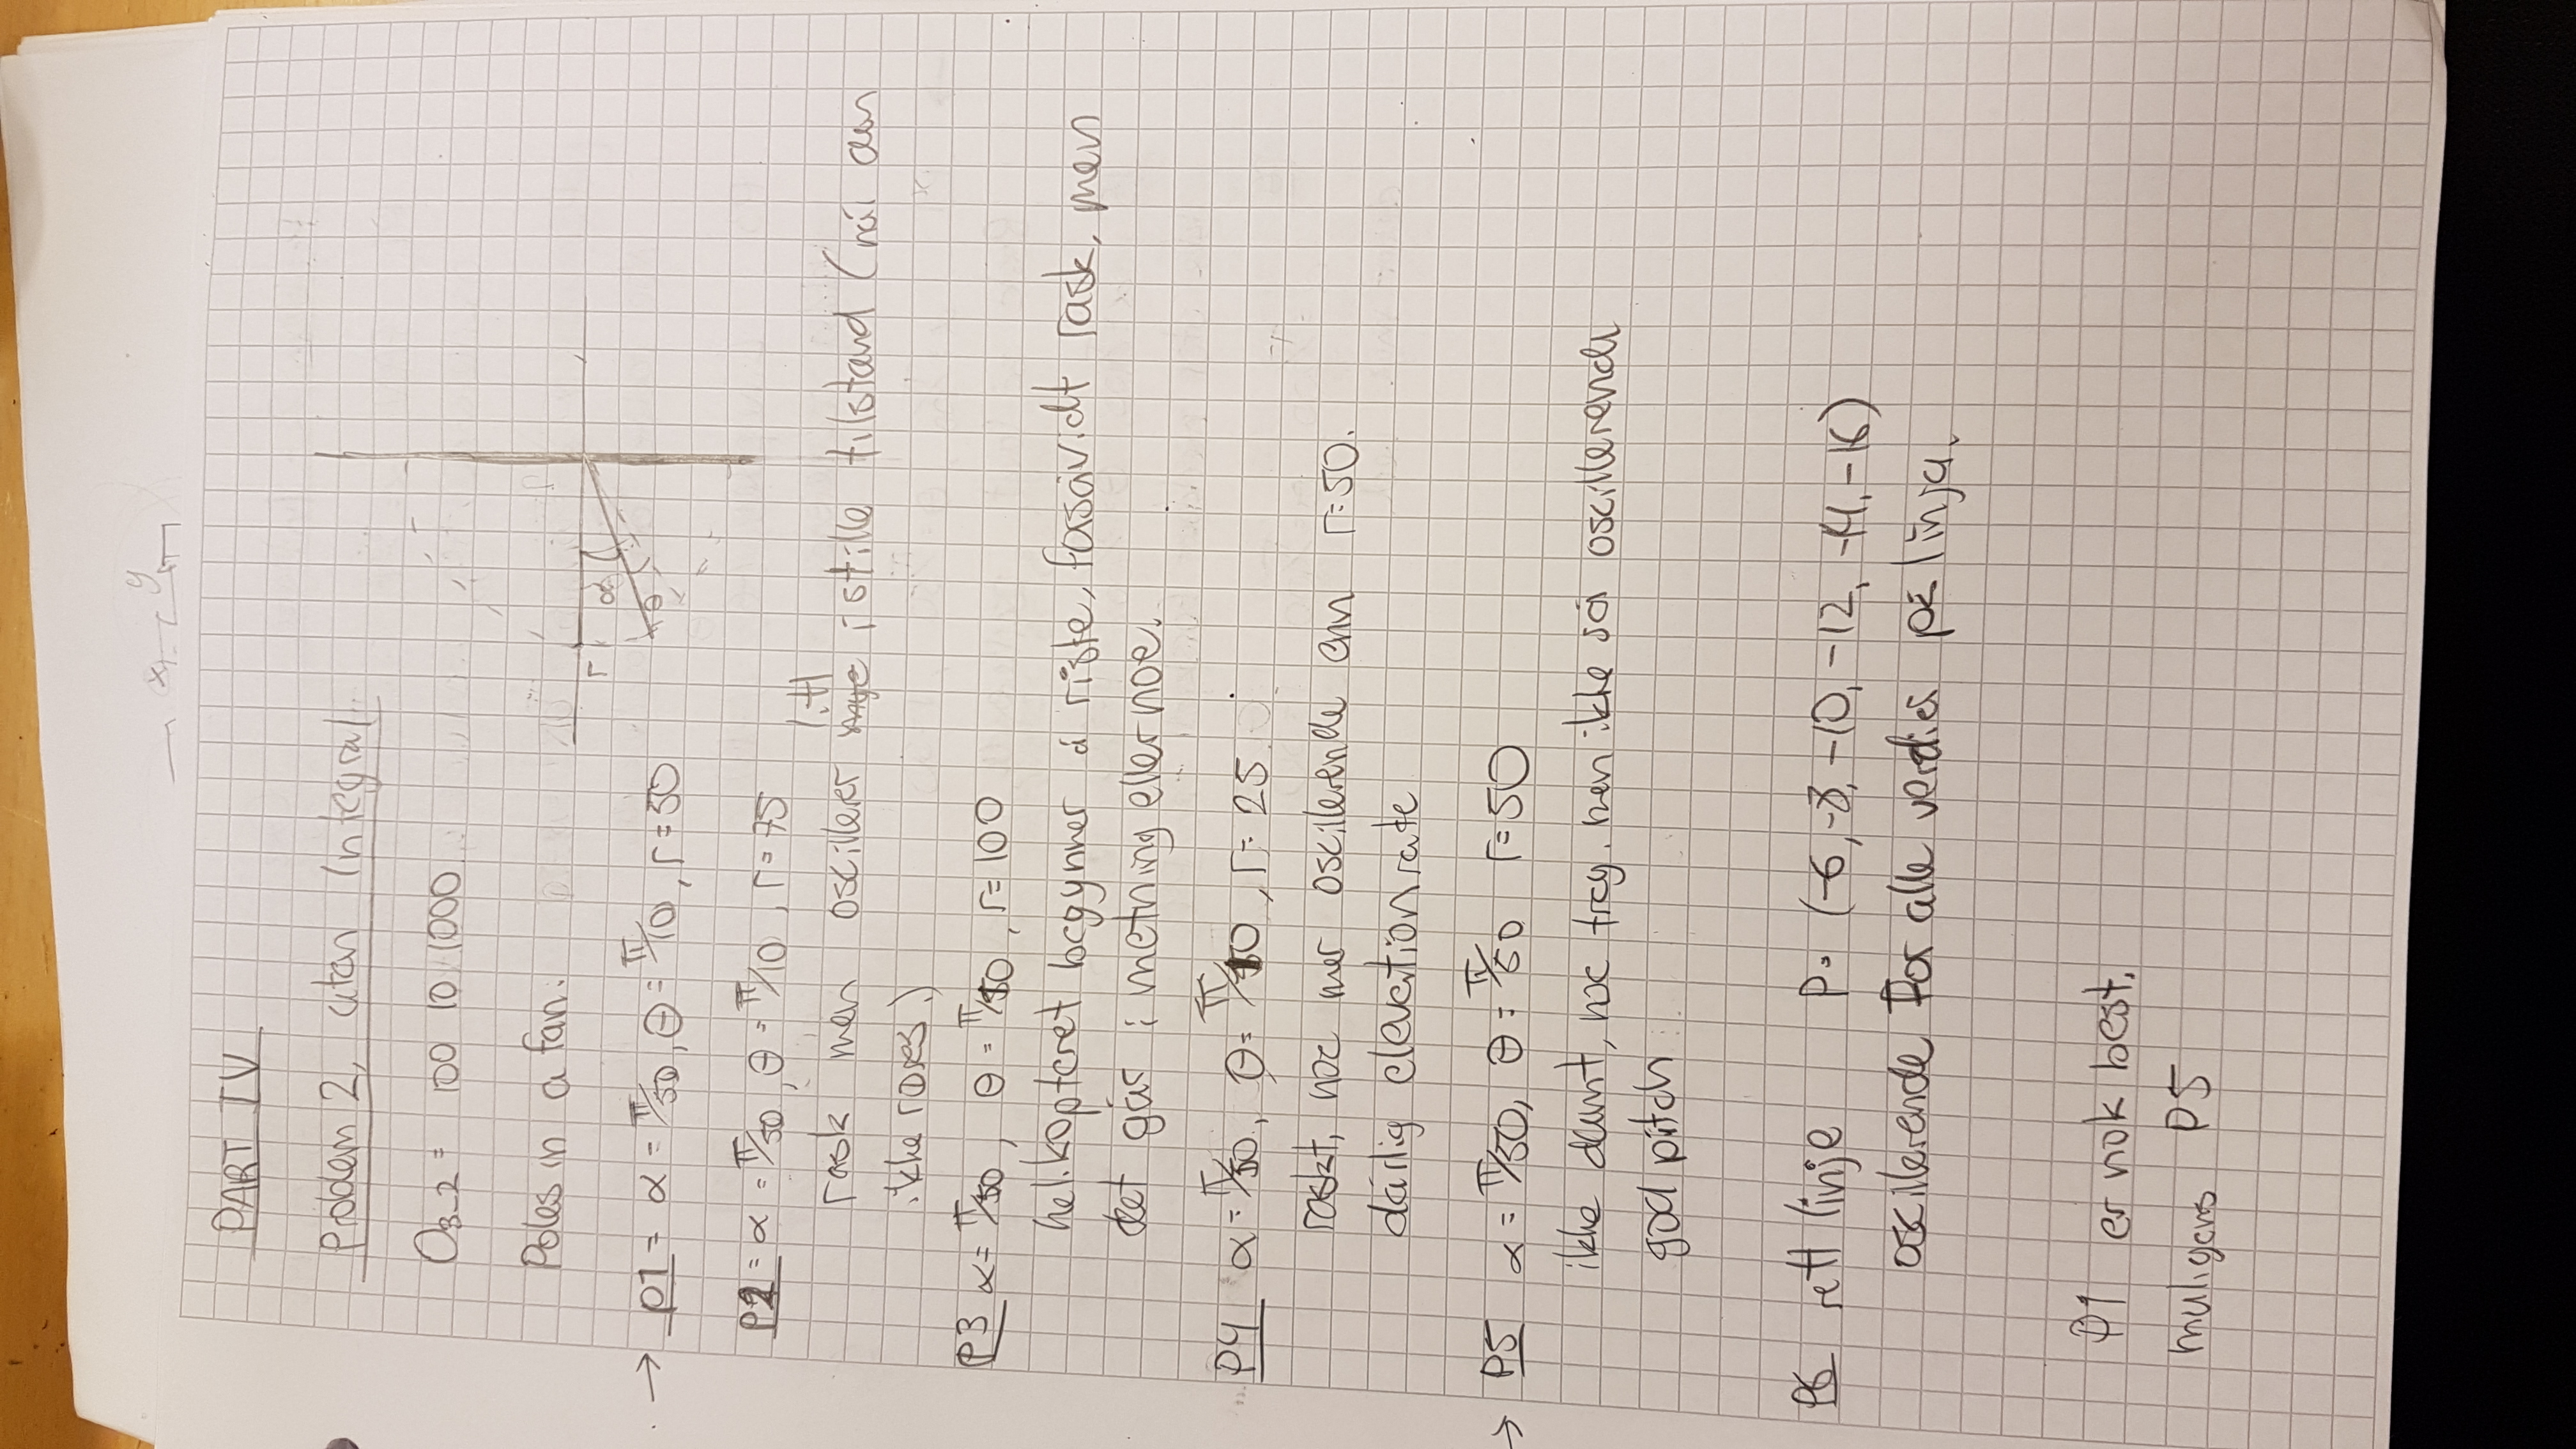 x y
PART IV
Problem 2, utan Integral.
Q3-2 = 100 10 1000
Poles in a fan.
r α θ
→ p1 = α = π/50, θ = π/10, r = 50
p2 = α = π/50, θ = π/10, r = 75
litt
rask men oscillerer i stille tilstand (når den
ikke røres.)
P3 α = π/50, θ = π/10, r = 100
helikopteret begynner å riste, forsåvidt rask, men
det går i metning eller noe.
P4 α = π/50, θ = π/10, r = 25
raskt, noe mer oscillerende enn r = 50.
dårlig elevation rate
→ P5 α = π/50, θ = π/50 r = 50
ikke dumt, noe treg. men ikke så oscillerende
god pitch
P6 rett linje P = (-6, -8, -10, -12, -14, -16)
oscillerende for alle verdier på linja.
P1 er nok best.
muligens P5